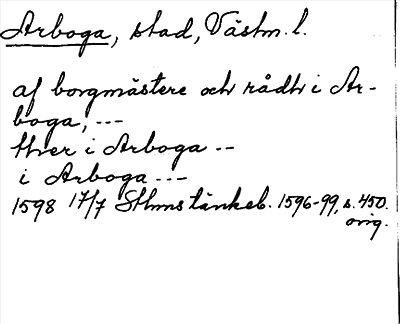 Arboga, stad, Västm. l.
af borgmästere och rådh i Ar-
boga, ---
hver i Arboga --
i Arboga ---
1598 17/7 Sthms tänkeb. 1596-99, s. 450.
orig.